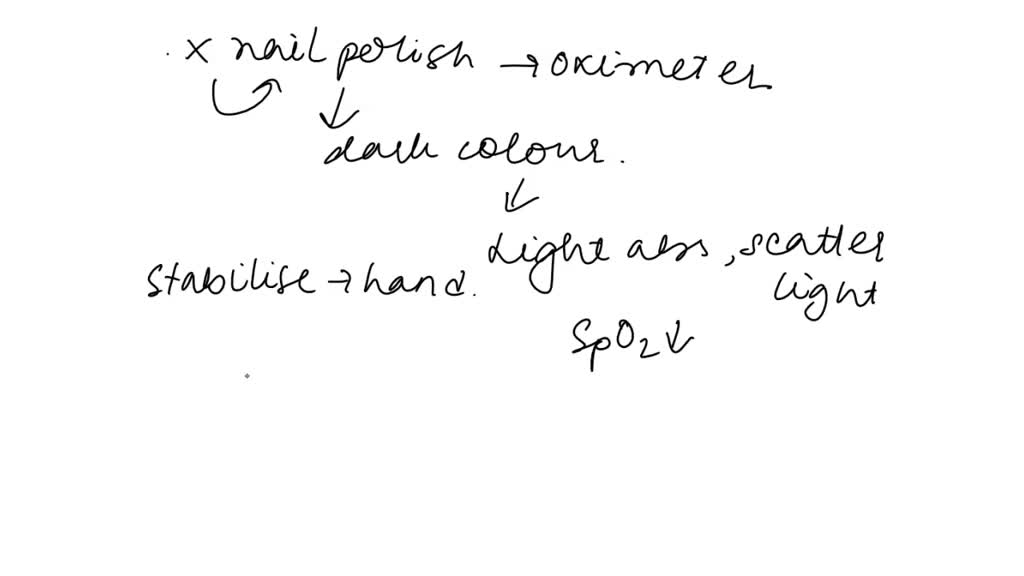 x nail perlish → oximeter
dark colour.
Light abs, scatter
light
stabilise → hand.
SpO2 ↓